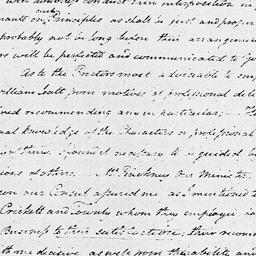 conduct their interposition in
such
on Principles as shall be just and proper
probably not be long before their arrangements
will be perfected and communicated to
As to the Proctors most adviseable to
William Scott, from motives of professional
recommending any in particular; — 
knowledge of the Characters or professional
I found it necessary to be guided by
of others. — Mr. Pinckney Our Minister
our Consul assured me as I mentioned to
Crickett and Townly whom they employed
Business to their satisfaction; their
me decisive as well from their ability and